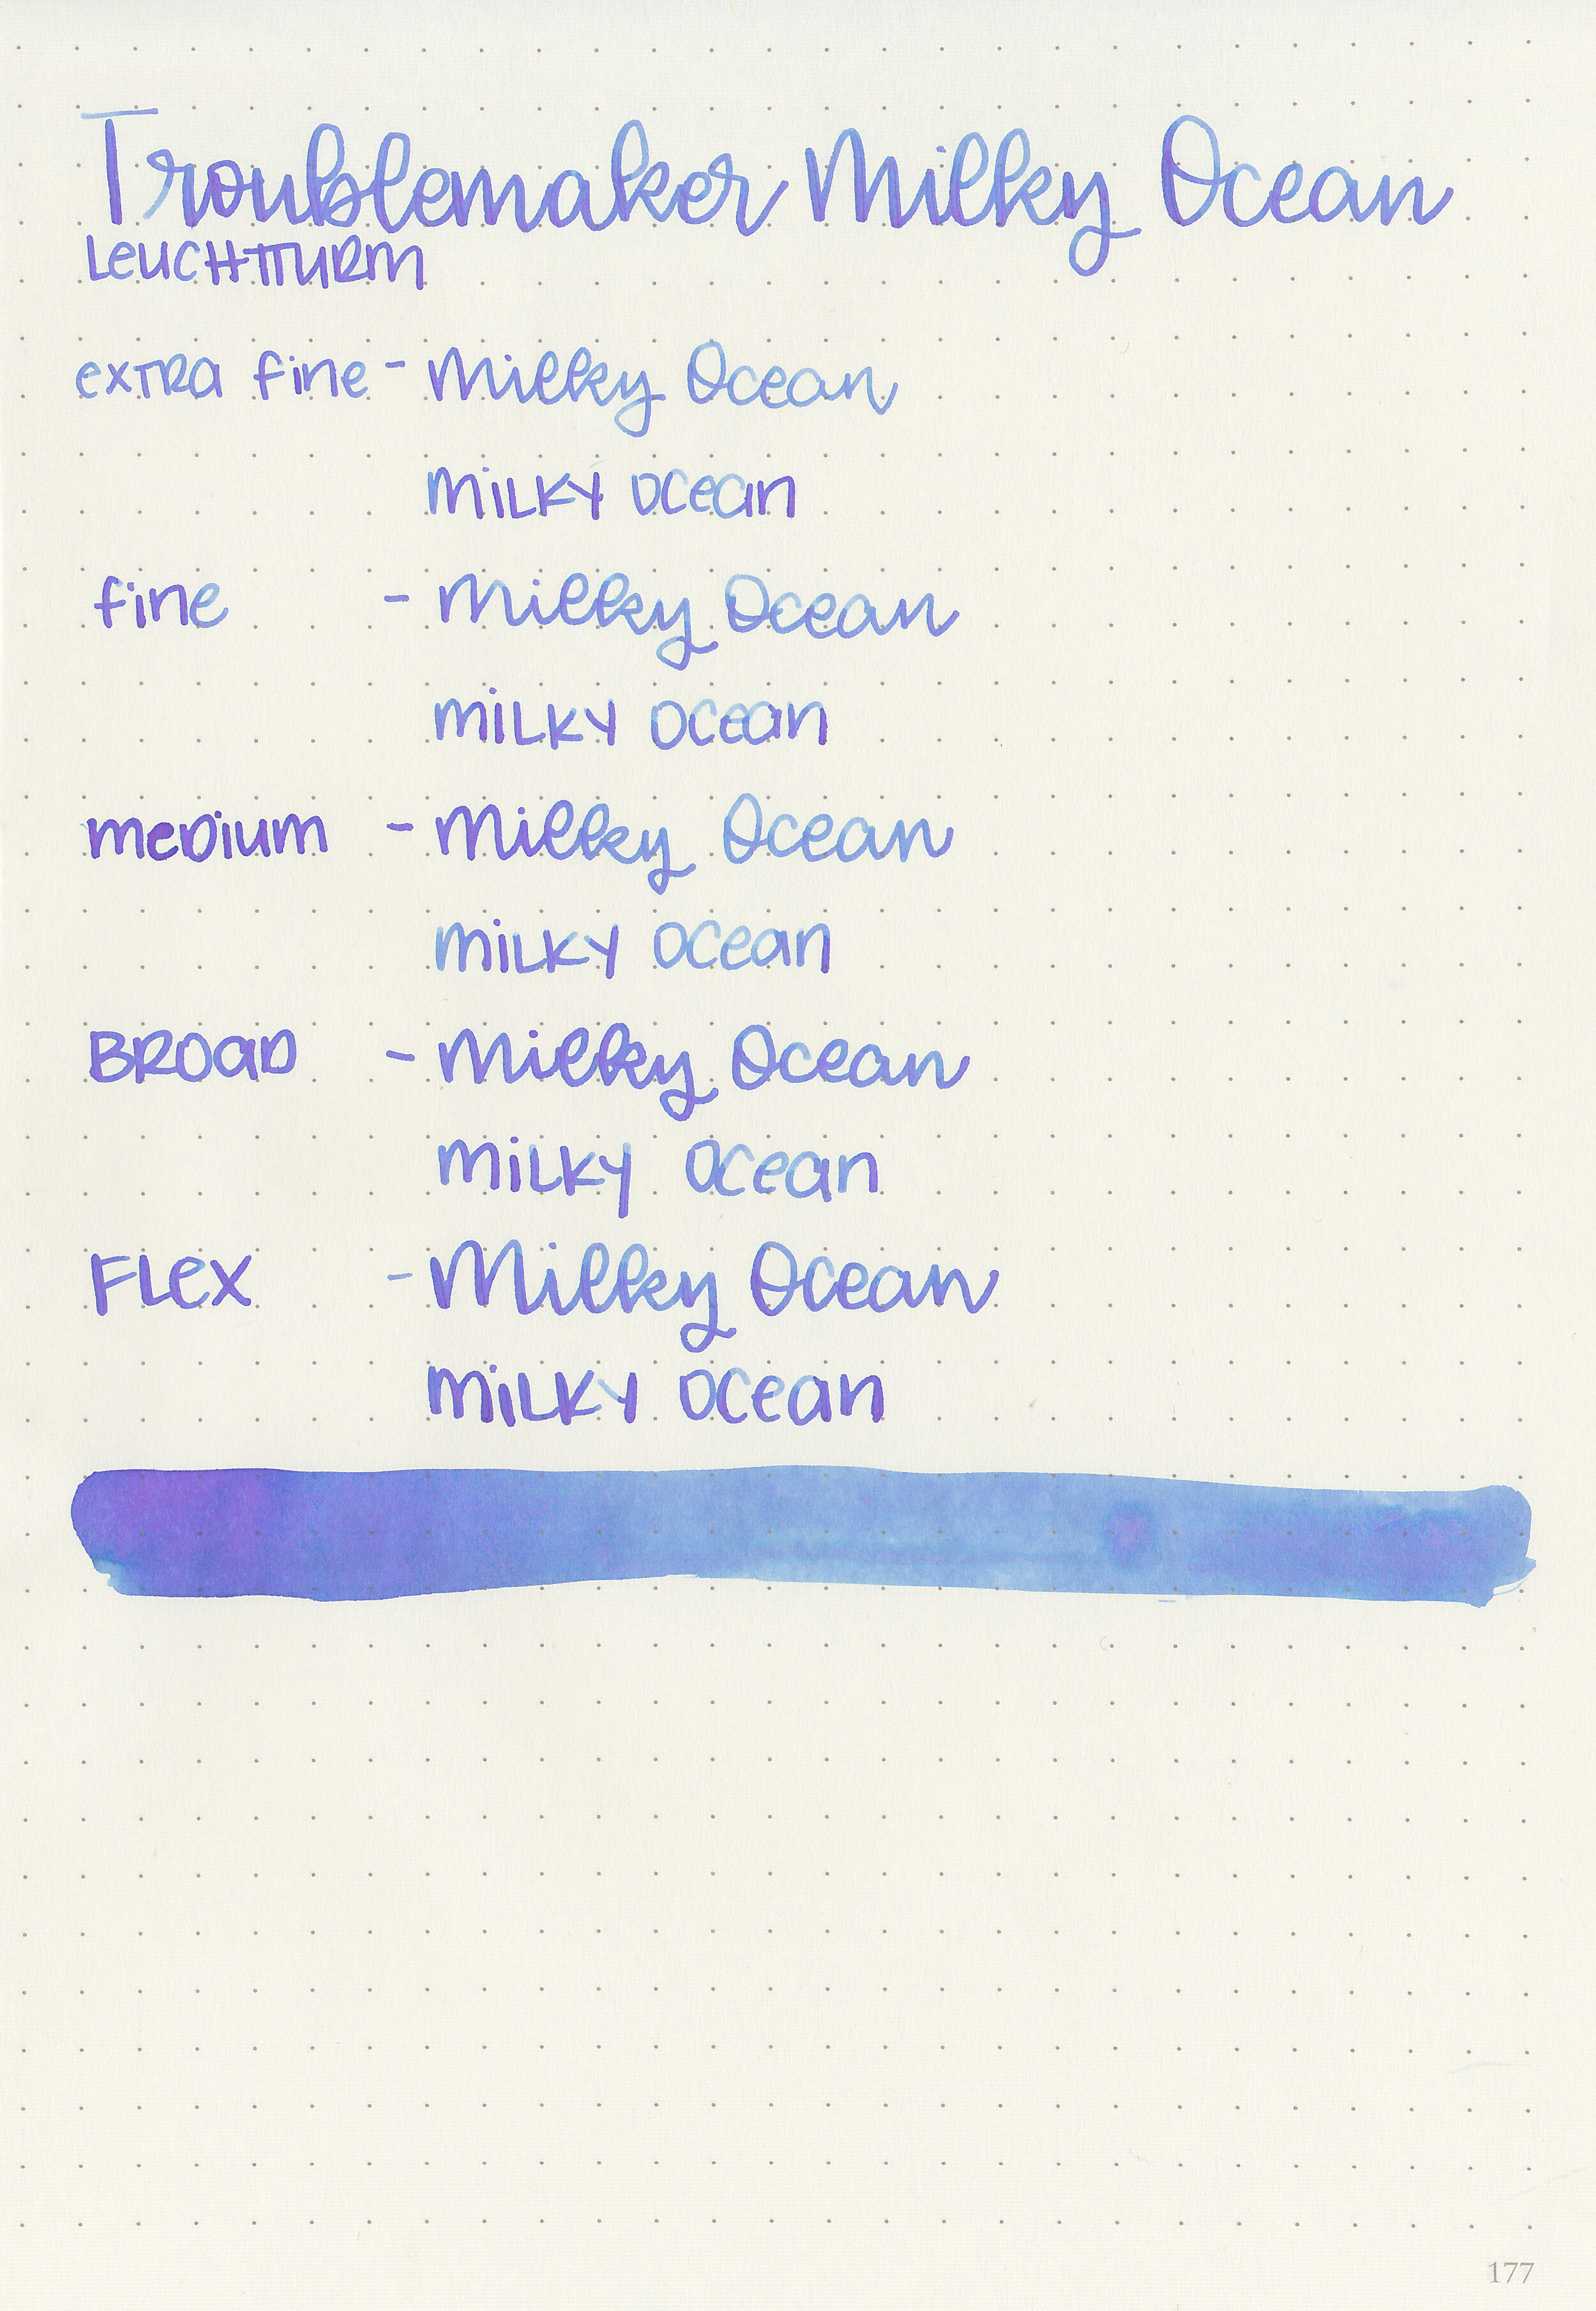 Troublemaker Milky Ocean
LeUCHTTURM
exTRa fine - Milky Ocean
MiLKY OCean
fine - Milky Ocean
MiLKY OCean
meDium - Milky Ocean
MiLKY OCean
BROaD - Milky Ocean
MiLKY OCean
FLex - Milky Ocean
MiLKY OCean
177